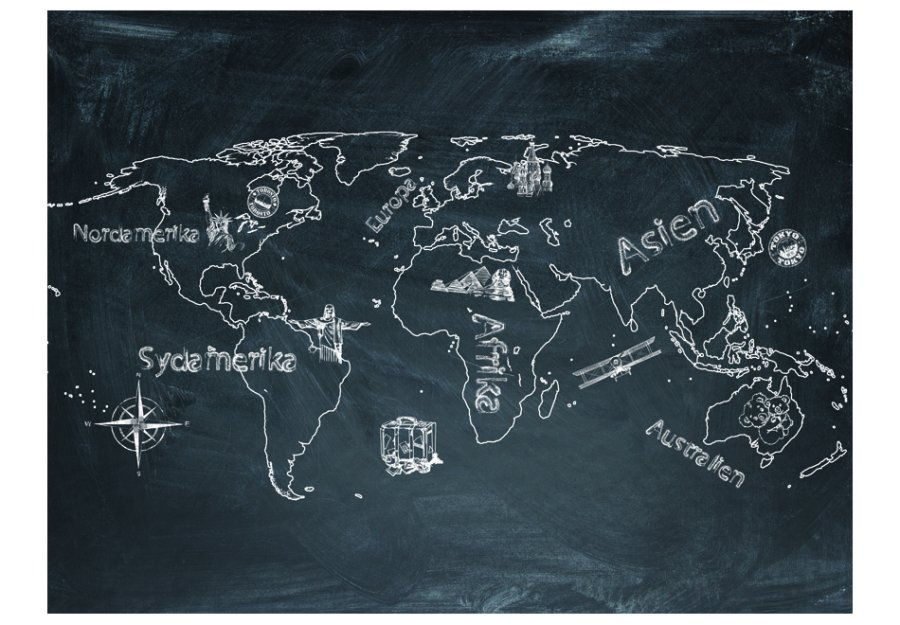 Nordamerika
Europe
Asien
TOKYO
TOKYO
Sydamerika
Afrika
N
W
E
S
Australien